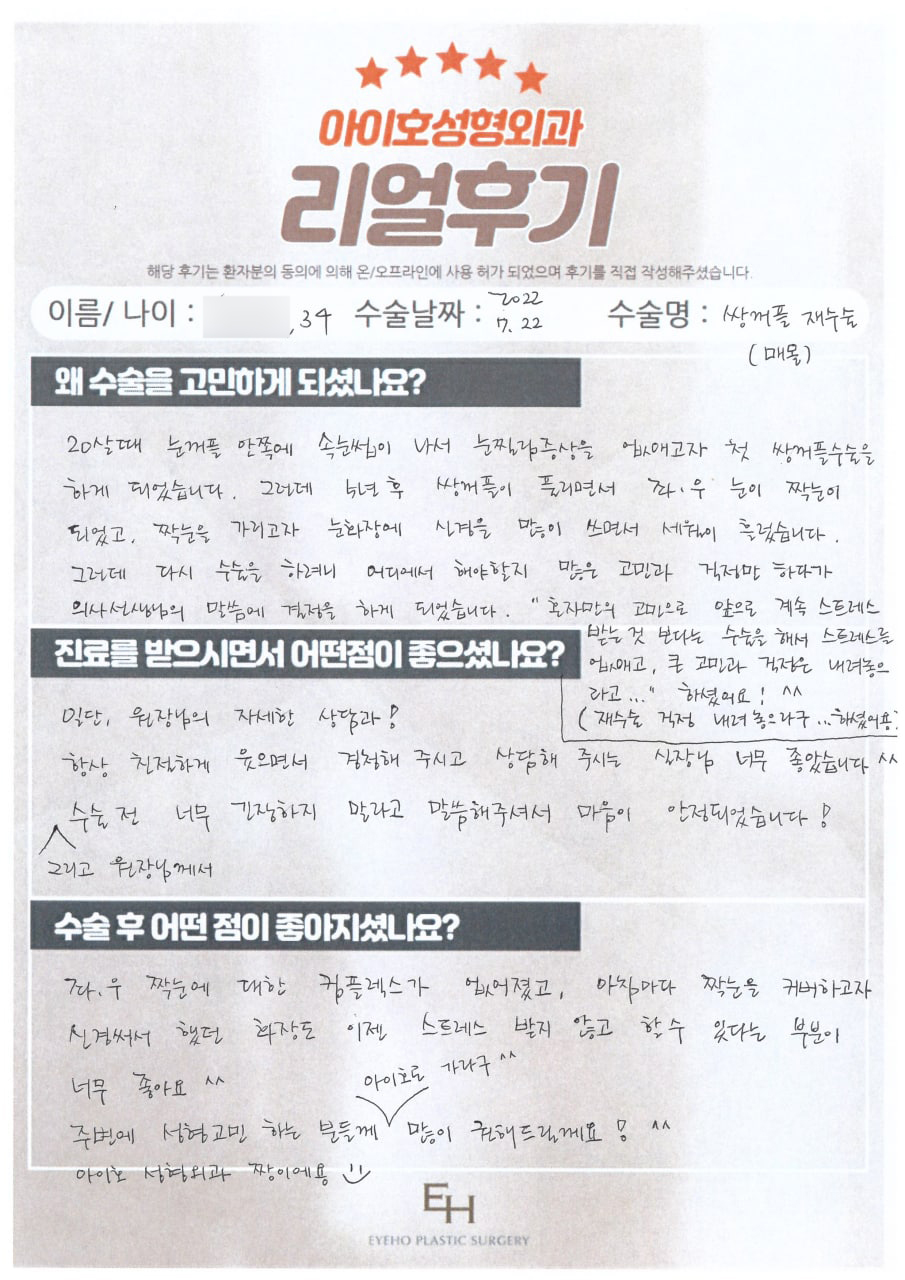 아이호성형외과
리얼후기
해당 후기는 환자분의 동의에 의해 온/오프라인에 사용 허가 되었으며 후기를 직접 작성해주셨습니다.
이름/ 나이 : , 34 수술날짜 : 2022 7. 22 수술명 : 쌍꺼플 재수술
(매몰)
왜 수술을 고민하게 되셨나요?
20살때 눈꺼플 안쪽에 속눈썹이 나서 눈찔림증상을 없애고자 첫 쌍꺼플수술을
하게 되었습니다. 그런데 5년 후 쌍꺼플이 풀리면서 좌.우 눈이 짝눈이
되었고, 짝눈을 가리고자 눈화장에 신경을 많이 쓰면서 세월이 흘렀습니다.
그런데 다시 수술을 하려니 어디에서 해야할지 많은 고민과 걱정만 하다가
의사선생님의 말씀에 결정을 하게 되었습니다. "혼자만의 고민으로 앞으로 계속 스트레스
받는것 보다는 수술을 해서 스트레스를
없애고, 큰 고민과 걱정은 내려놓으
라고..." 하셨어요! ^^
(재수술 걱정 내려놓으라구...하셨어용)
진료를 받으시면서 어떤점이 좋으셨나요?
일단, 원장님의 자세한 상담과!
항상 친절하게 웃으면서 결정해 주시고 상담해 주시는 실장님 너무 좋았습니다 ^^
수술 전 너무 긴장하지 말라고 말씀해주셔서 마음이 안정되었습니다!
그리고 원장님께서
수술 후 어떤 점이 좋아지셨나요?
좌.우 짝눈에 대한 컴플렉스가 없어졌고, 아침마다 짝눈을 커버하고자
신경써서 했던 화장도 이젠 스트레스 받지 않고 할 수 있다는 부분이
너무 좋아요 ^^
아이호로 가라구 ^^
주변에 성형고민 하는 분들께 많이 권해드릴께요! ^^
아이호 성형외과 짱이에용
EH
EYEHO PLASTIC SURGERY